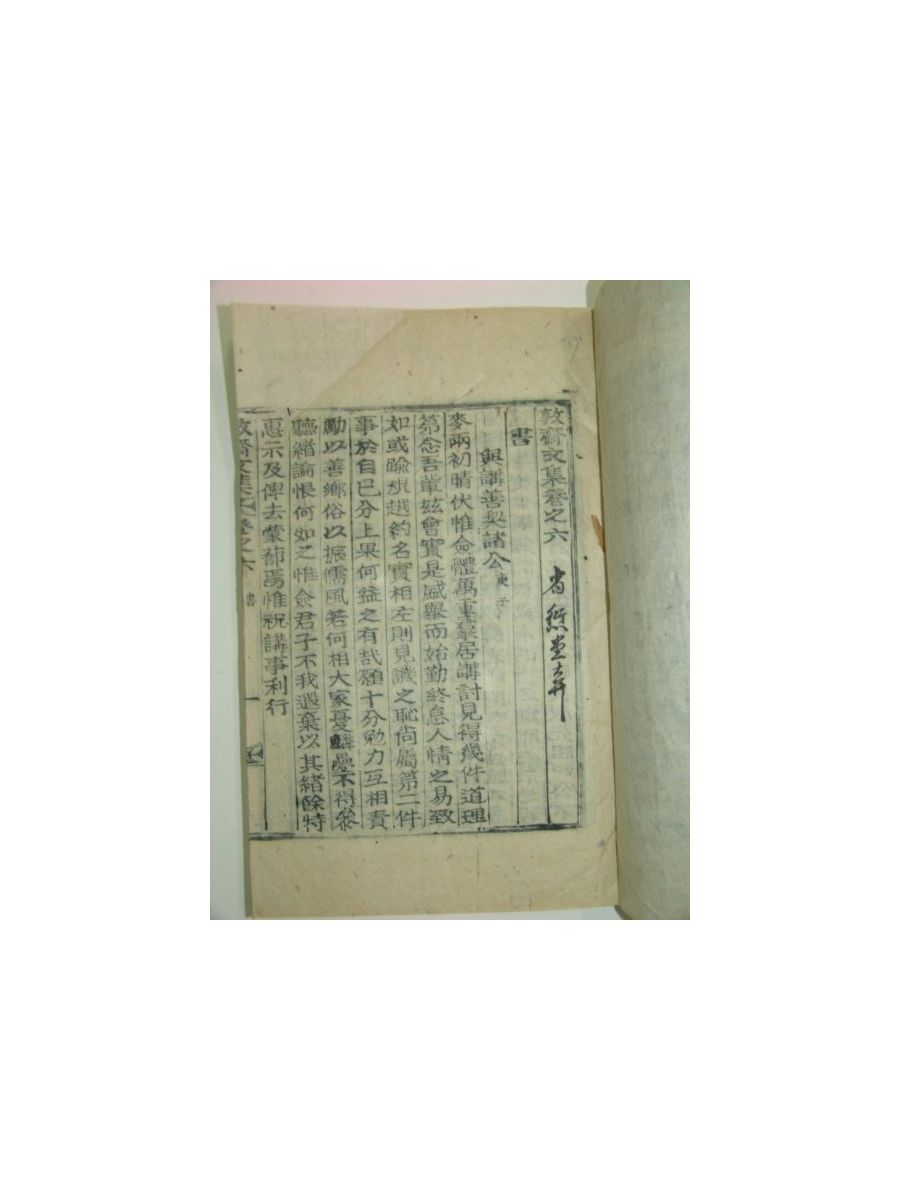 敦齋文集卷之六
書
與講善契諸公 庚子
麥兩初晴伏惟僉體萬重羣居講討見得幾件道理
第念吾輩玆會實是盛舉而始勤終怠人情之易致
如或踰規越約名實相左則見譏之恥尙屬第二件
事於自已分上果何益之有哉願十分勉力互相責
勵以善鄕俗以振儒風若何相大家憂鱗疊不得參
聽緖論恨何如之惟僉君子不我遐棄以其緖餘特
惠示及俾去蒙蔀焉惟祝講事利行
敦齋文集卷之六 書 一